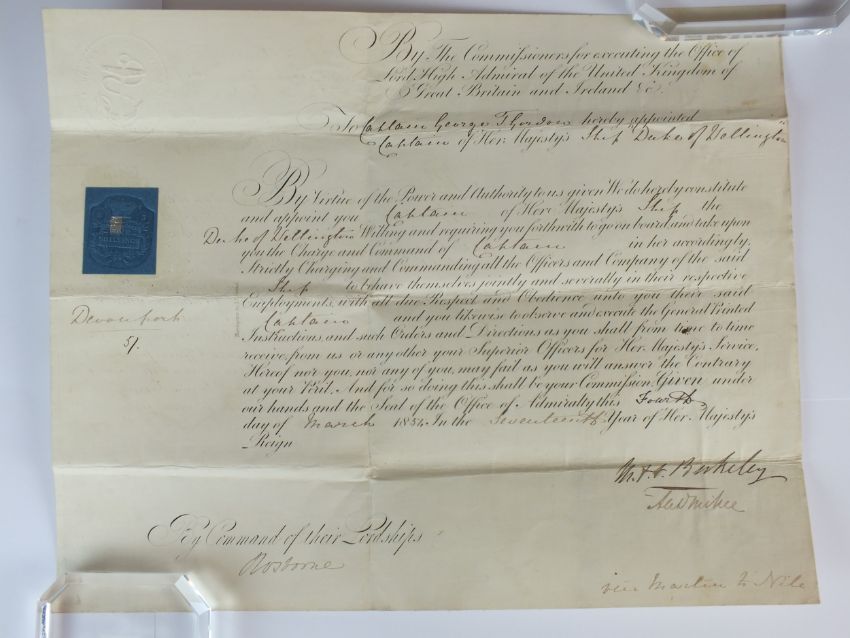 By The Commissioners for executing the Office of
Lord High Admiral of the United Kingdom of
Great Britain and Ireland &c.
To Captain George T Gordon hereby appointed
Captain of Her Majesty's Ship "Duke of Wellington"
By Virtue of the Power and Authority to us given We do hereby constitute
and appoint you Captain of Her Majesty's Ship the
Duke of Wellington Willing and requiring you forthwith to go on board and take upon
you the Charge and Command of Captain in her accordingly.
Strictly Charging and Commanding all the Officers and Company of the said
Ship to behave themselves jointly and severally in their respective
Employments, with all due Respect and Obedience unto you their said
Captain and you likewise to observe and execute the General Printed
Instructions, and such Orders and Directions as you shall from time to time
receive from us or any other your Superior Officers for Her Majesty's Service.
Hereof nor you, nor any of you, may fail as you will answer the Contrary
at your Peril. And for so doing this shall be your Commission. Given under
our hands and the Seal of the Office of Admiralty this Fourth
day of March 1854. In the Seventeenth Year of Her Majesty's
Reign
Devonport
5/.
M. F. F. Berkeley
By Command of their Lordships
R Osborne
vice Martin to Nile